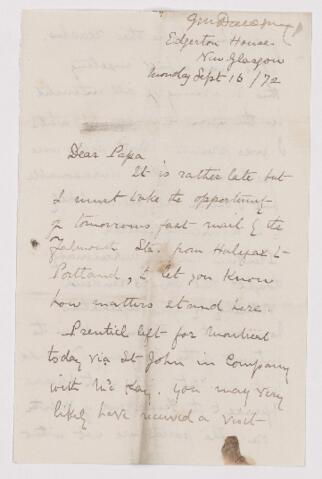 Edgerton House
New Glasgow
Monday Sept 16/72
Dear Papa
It is rather late but
I must take the opportunity
of tomorrows fast mail & the
Str. from Halifax to
Portland, to let you know
how matters stand here.
Prentice left for Montreal
today via St John in Company
with Mc Kay. You may very
likely have received a visit